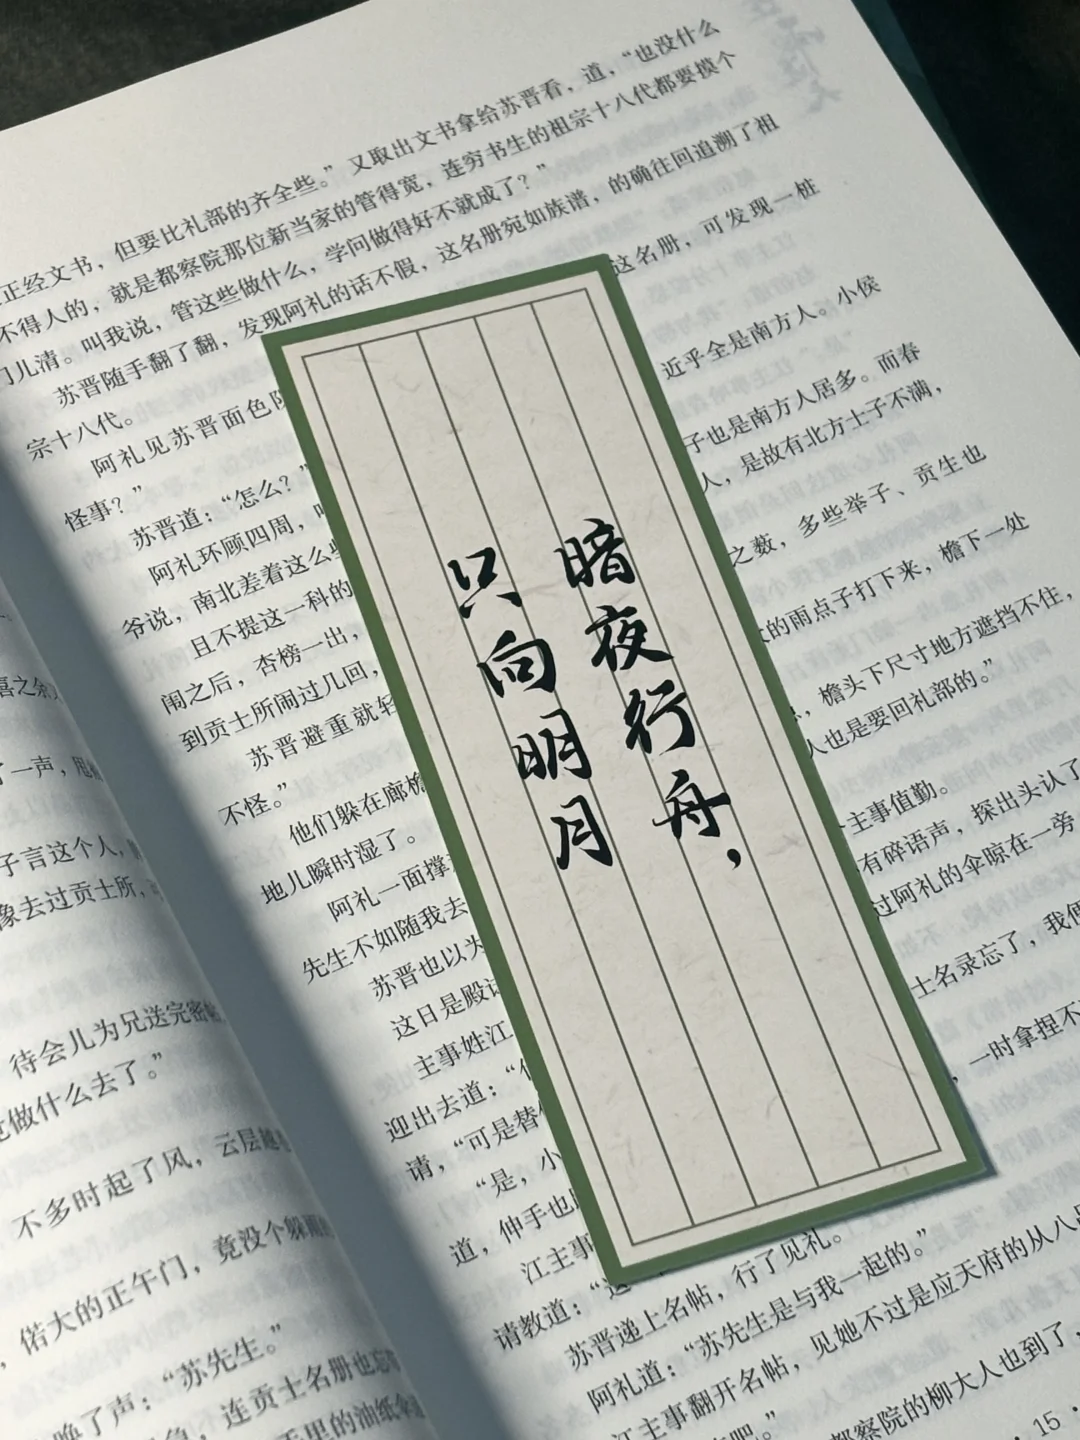 正经文书，但要比礼部的齐全些。”又取出文书拿给苏晋看，道，“也没什么
不得人的，就是都察院那位新当家的管得宽，连穷书生的祖宗十八代都要摸个
门儿清。叫我说，管这些做什么，学问做得好不就成了？”
苏晋随手翻了翻，发现阿礼的话不假，这名册宛如族谱，的确往回追溯了祖
宗十八代。
阿礼见苏晋面色
这名册，可发现一桩
怪事？”
苏晋道：“怎么？”
近乎全是南方人。小侯
阿礼环顾四周，
爷说，南北差着这么些
子也是南方人居多。而春
且不提这一科的
人，是故有北方士子不满，
闱之后，杏榜一出，
到贡士所闹过几回，
之数，多些举子、贡生也
苏晋避重就轻
不怪。”
他们躲在廊檐
的雨点子打下来，檐下一处
地儿瞬时湿了。
阿礼一面撑
，檐头下尺寸地方遮挡不住，
先生不如随我去
人也是要回礼部的。”
苏晋也以为
这日是殿试
个主事值勤。
主事姓江
有碎语声，探出头认了
迎出去道：“
过阿礼的伞晾在一旁
请，“可是替
“是，小
士名录忘了，我便
道，伸手也
江主事
，一时拿捏不
请教道：“这
行了见礼。
苏晋递上名帖，
阿礼道：“苏先生是与我一起的。”
江主事翻开名帖，见她不过是应天府的从八品
吧。”
都察院的柳大人也到了，
·15·
暗夜行舟，
只向明月
喜之余
了一声，
子言这个人，
像去过贡士所，
待会儿为兄送完密
做什么去了。”
不多时起了风，云层越
，偌大的正午门，竟没个躲雨
唤了声：“苏先生。”
，连贡士名册也忘
手里的油纸伞